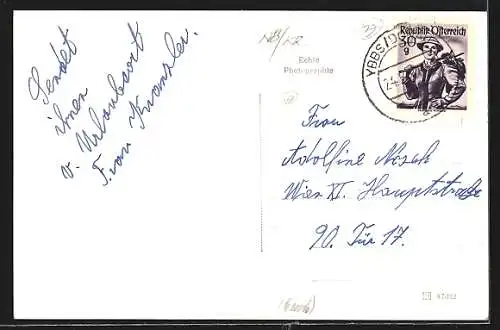 Sendet
ihnen
v. Urlaubsort
Frau Kvanzler.
Echte
Photographie
Republik Österreich
30
g
YBBS/D
24.
Frau
Adolfine
Wien XI. Hauptstraße
90. Tür 17.